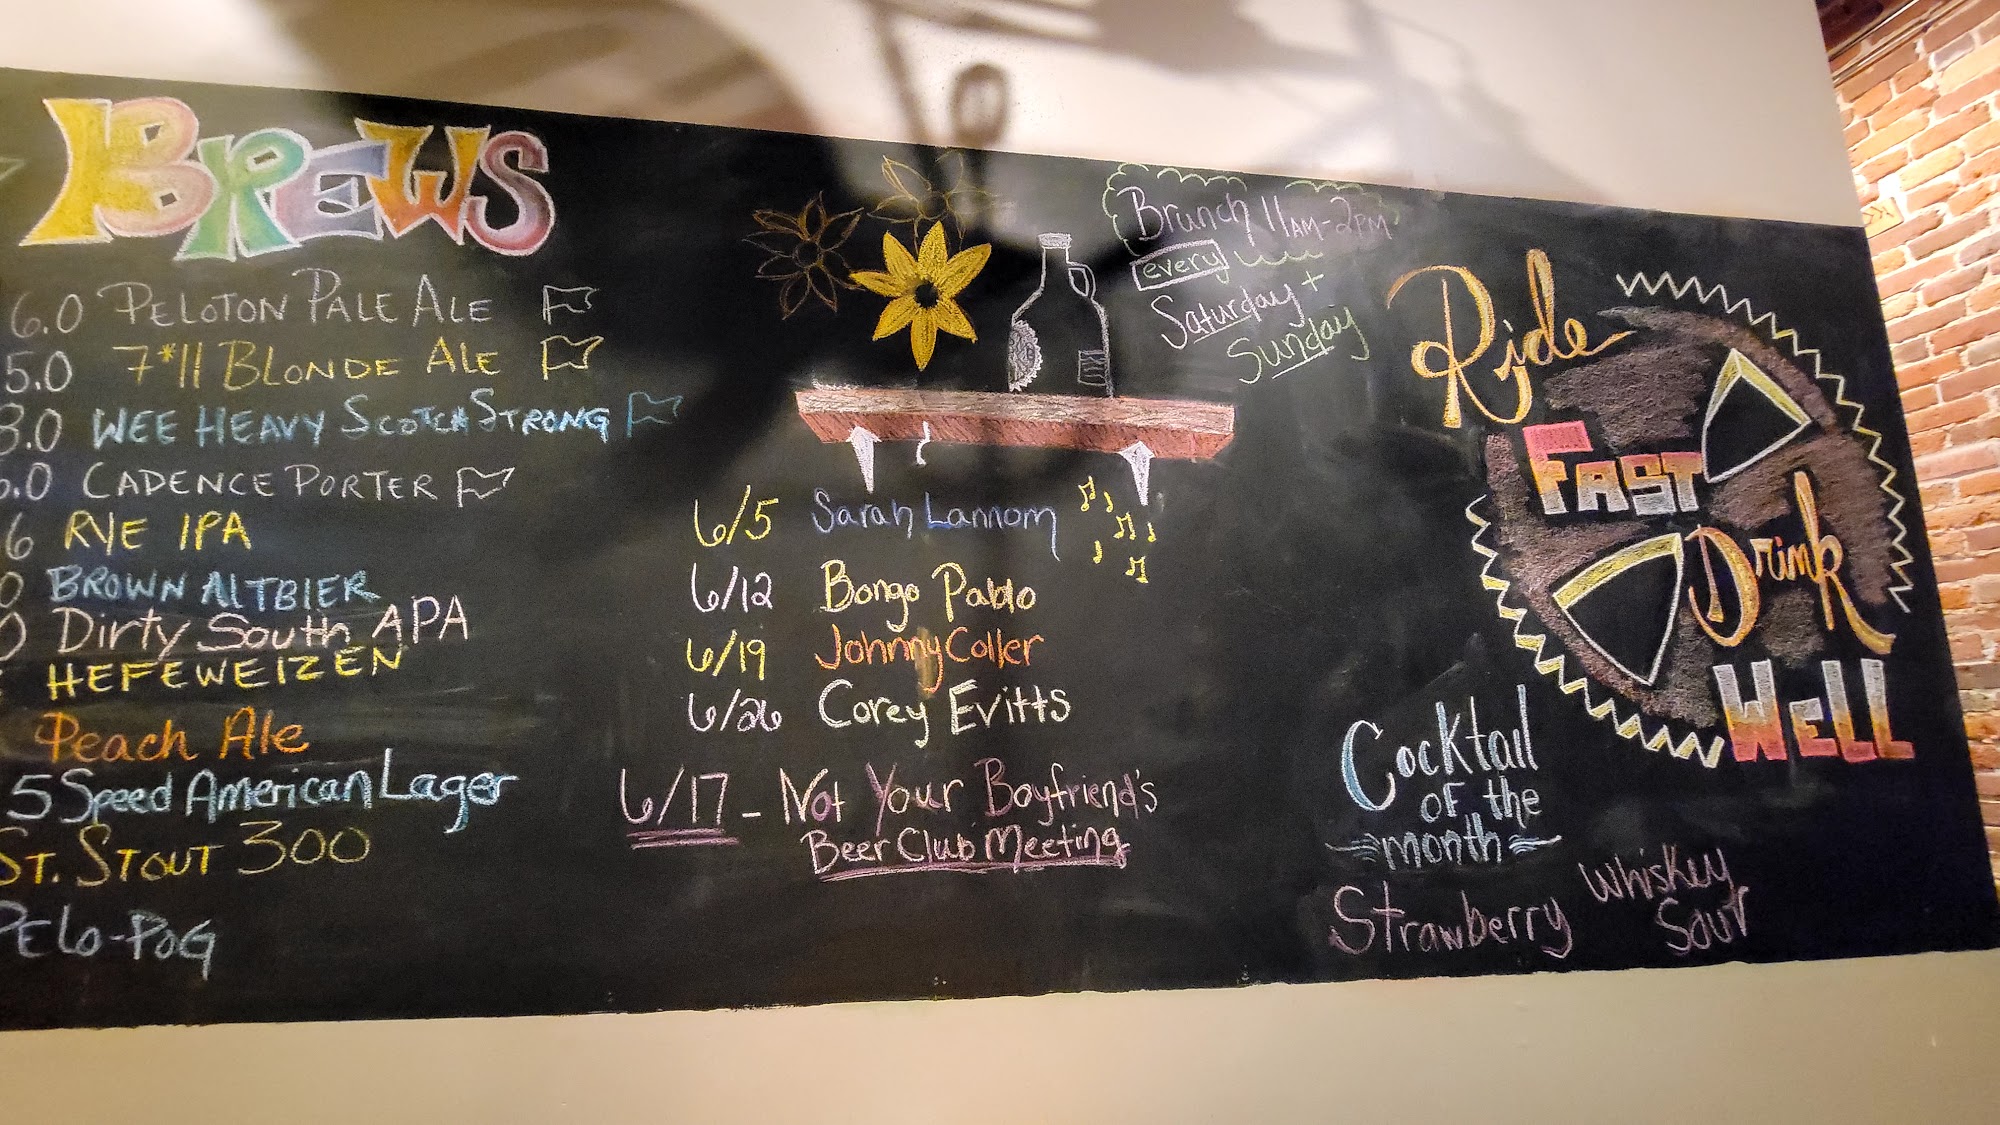 BREWS
6.0 PELOTON PALE ALE
5.0 7*11 BLONDE ALE
8.0 WEE HEAVY SCOTCH STRONG
6.0 CADENCE PORTER
6 RYE IPA
0 BROWN ALTBIER
0 Dirty South APA
HEFEWEIZEN
Peach Ale
5 Speed American Lager
ST. STOUT 300
PELO-POG
Brunch 11AM-2PM
every
Saturday +
Sunday
6/5 Sarah Lannom
6/12 Bongo Pablo
6/19 Johnny Coller
6/26 Corey Evitts
6/17 - Not Your Boyfriend's
Beer Club Meeting
Ride
FAST
Drink
WELL
Cocktail
of the
month
Strawberry Whiskey
Sour